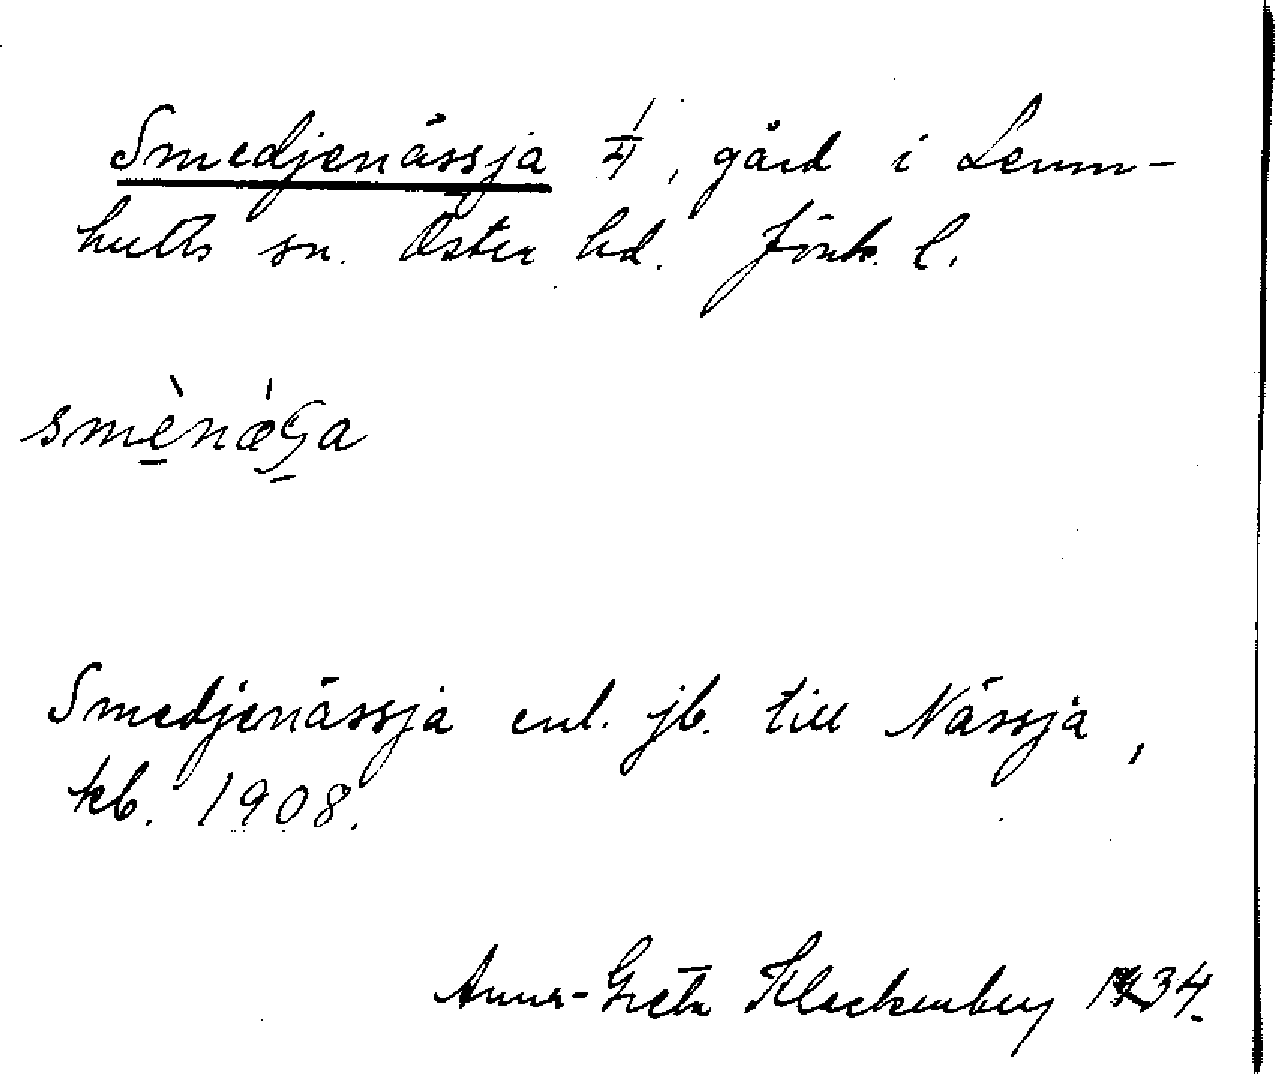 Smedjenässja 1/4, gård i Lemn-
hults sn. Öster hd. Jönk. l.
Smedjenässja enl. jb. till Nässja,
kb. 1908.
Anna-Greta Klackenberg 1934.